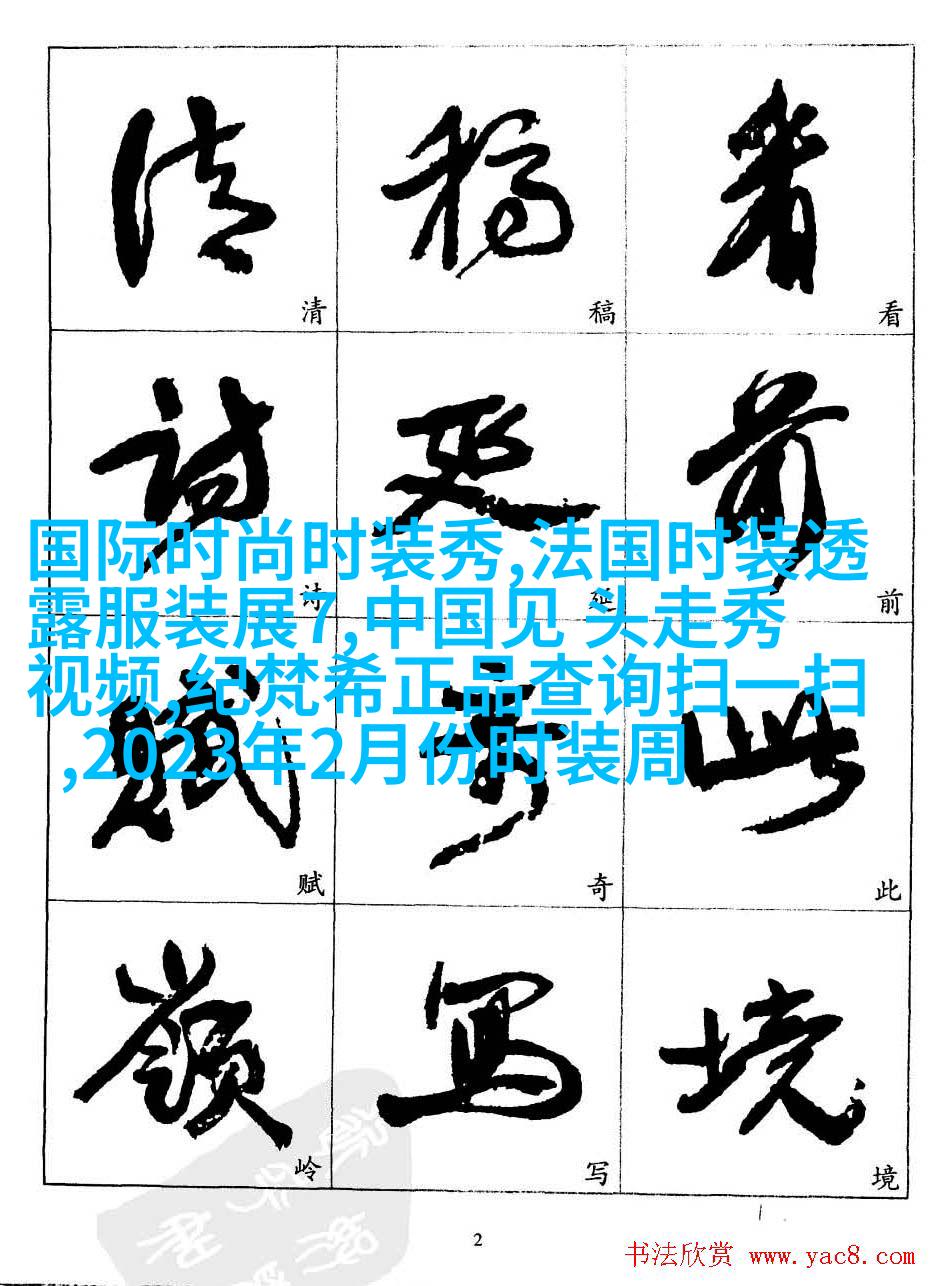 清 稿 看
诗 延 前
国际时尚时装秀,法国时装透
露服装展7,中国见 头走秀
视频,纪梵希正品查询扫一扫
,2023年2月份时装周
赋 奇 此
岭 写 境
2
书法欣赏 www.yac8.com